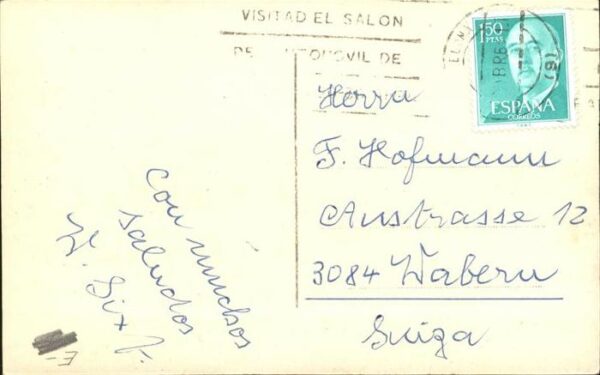 VISITAD EL SALON
DEL AUTOMOVIL DE
1'50
PTAS
ESPAÑA
CORREOS
Herrn
F. Hofmann
Austrasse 12
3084 Wabern
Suiza
con muchos
saludos